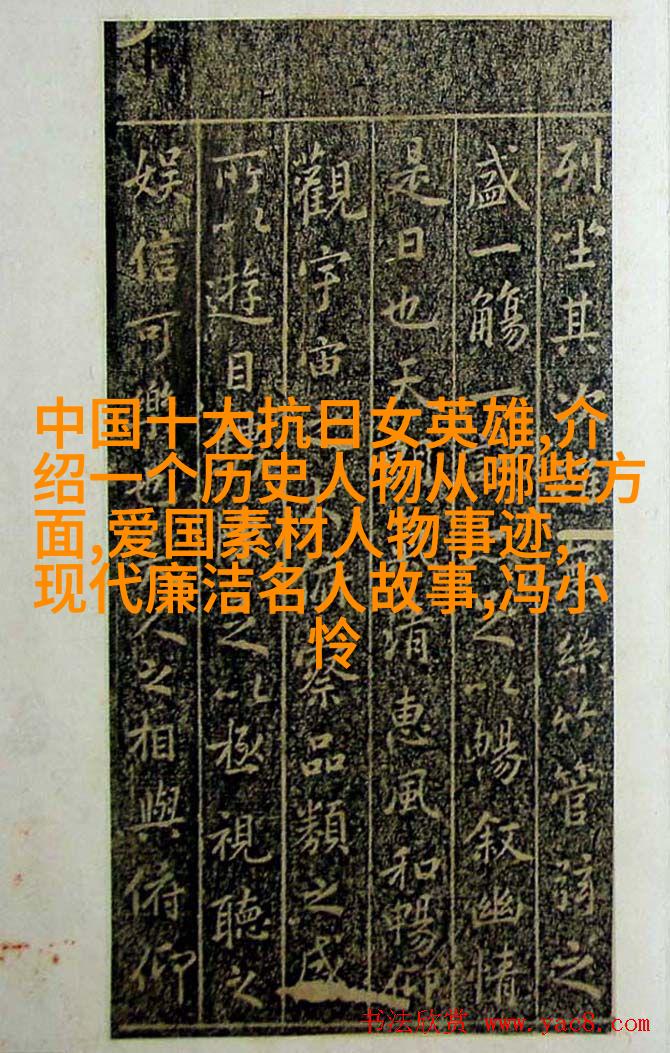 列坐其次絲竹管弦之
盛一觴一以暢叙幽情
是日也天清惠風和暢仰
觀宇宙察品類之盛
所以遊目以極視聽之
娱信可樂人之相與俯仰
中国十大抗日女英雄,介
绍一个历史人物从哪些方
面,爱国素材人物事迹,
现代廉洁名人故事,冯小
怜
书法欣赏 www.yac8.com